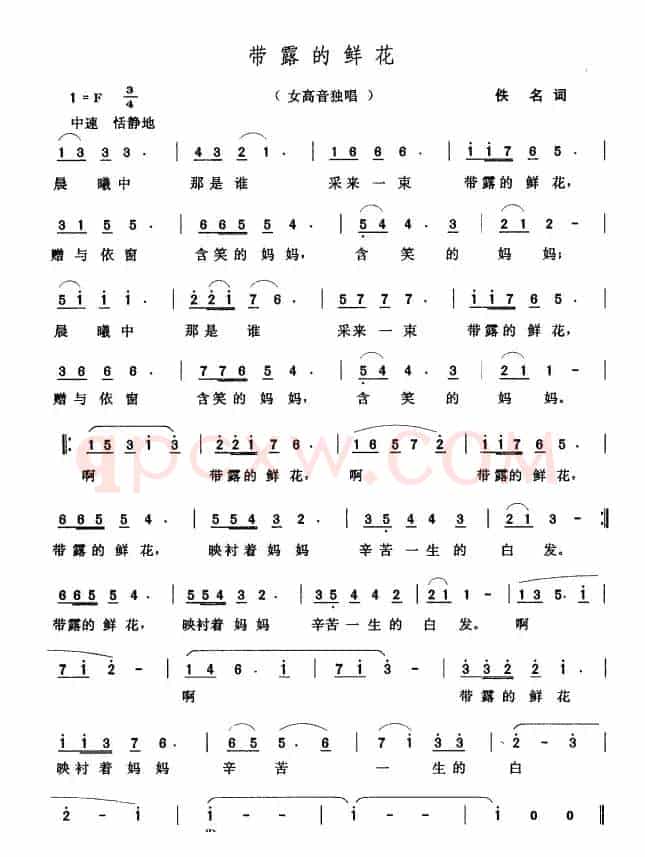 带露的鲜花
1=F 3/4 （女高音独唱） 佚名词
中速 恬静地
1 3 3 3 · | 4 3 2 1 · | 1 6 6 6 · | i i 7 6 5 · |
晨曦中 那是谁 采来一束 带露的鲜花，
3 1 5 5 · | 6 6 5 5 4 · | 5 4 4 · 3 | 2 1 2 - |
赠与依窗 含笑的妈妈， 含笑的妈妈；
5 i i i · | 2 2 i 7 6 · | 5 7 7 7 · | i i 7 6 5 · |
晨曦中 那是谁 采来一束 带露的鲜花，
3 6 6 6 · | 7 7 6 5 4 · | 5 4 4 · 3 | 2 1 1 - |
赠与依窗 含笑的妈妈， 含笑的妈妈。
‖: 1 5 3 i 3 | 2 2 i 7 6 · | 1 6 5 7 2 | i i 7 6 5 · |
啊 带露的鲜花， 啊 带露的鲜花，
6 6 5 5 4 · | 5 5 4 3 2 · | 3 5 4 4 2 | 2 1 3 - :‖
带露的鲜花， 映衬着妈妈 辛苦一生的白发。
6 6 5 5 4 · | 5 5 4 3 2 · | 3 5 4 4 2 | 2 1 1 - | 1 3 5 · i |
带露的鲜花， 映衬着妈妈 辛苦一生的白发。 啊
7 i 2 - | 1 4 6 · i | 7 i i - | 3 3 2 2 · i |
啊 带露的鲜花
i i 3 7 6 · | 6 5 5 · 6 | 7 i 3 3 | 2 - 3 |
映衬着妈妈 辛苦一生的白
2 - i | i - - | i - - | i 0 0 ‖